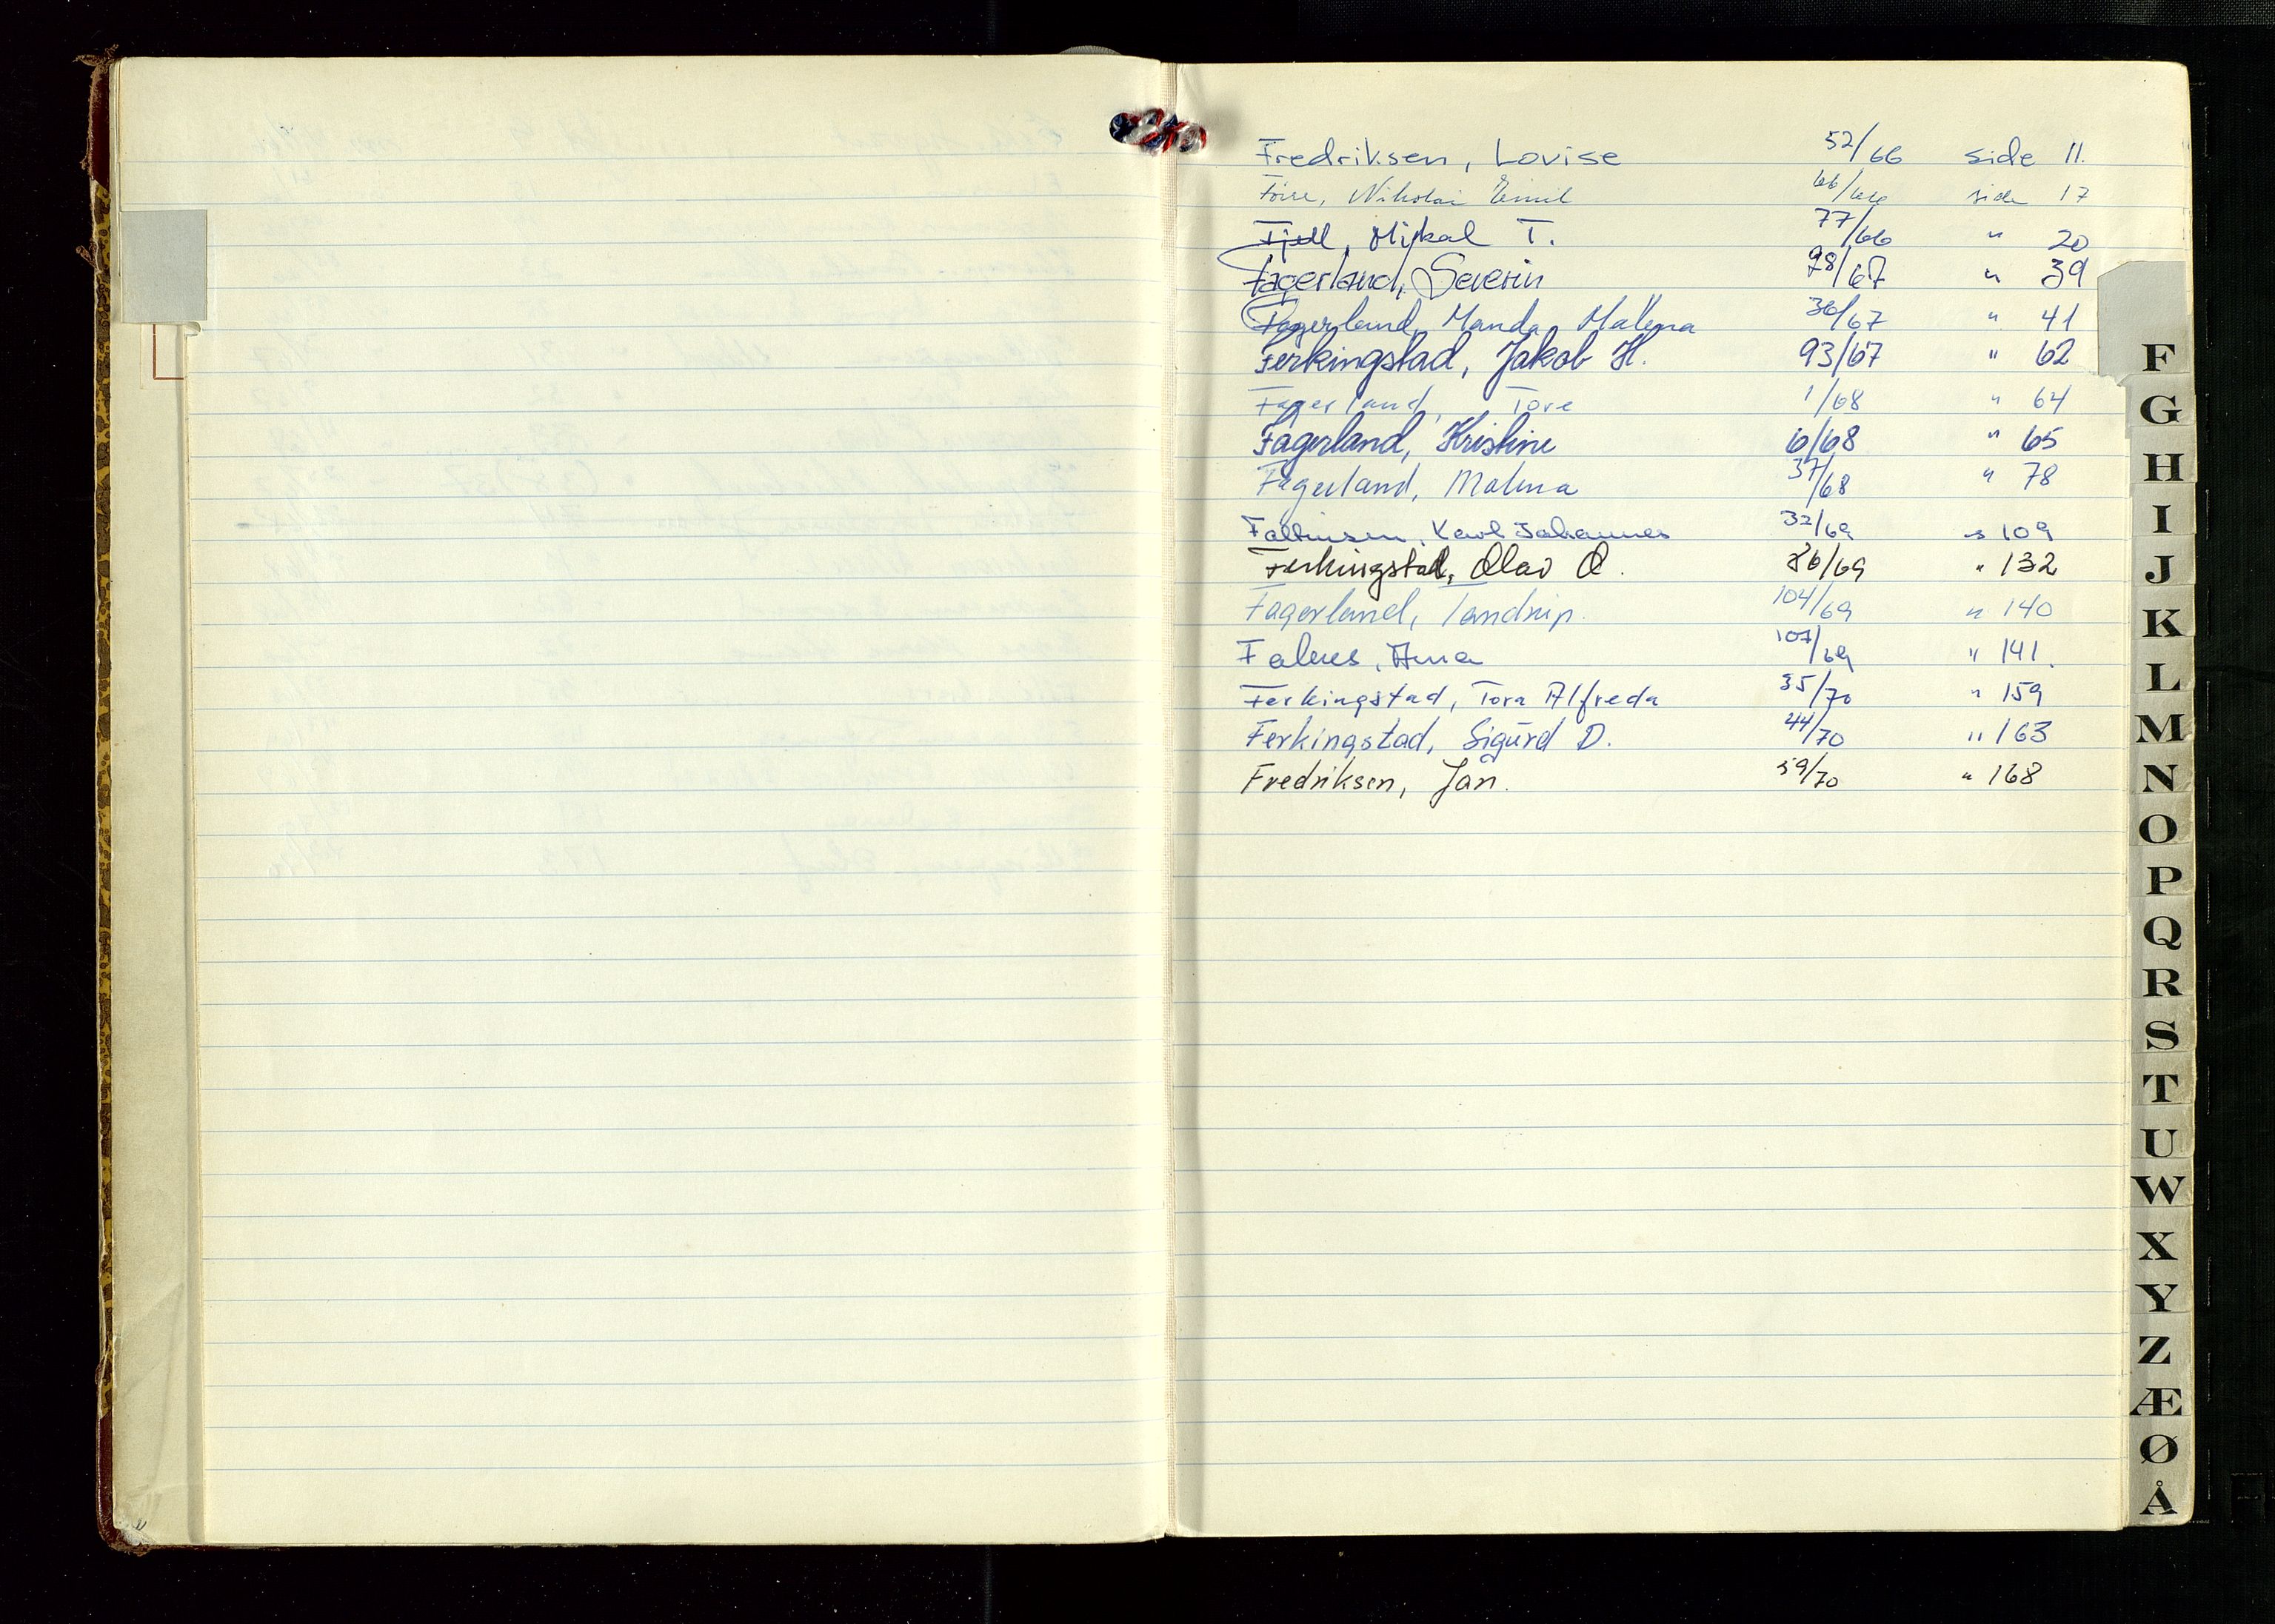 Fredriksen, Lovise 52/66 side 11.
Nikolai Emil 66/66 side 17
Fjell, Mikal T. 77/66 " 20
Fagerland, Severin 28/67 " 39
Fagerland, Manda Malena 36/67 " 41
Ferkingstad, Jakob H. 93/67 " 62
Fagerland, Tore 1/68 " 64
Fagerland, Kristine 6/68 " 65
Fagerland, Malena 37/68 " 78
Karl Johannes 32/69 " 109
Ferkingstad, Olav O. 86/69 " 132
Fagerland, 104/69 " 140
Falnes, Anna 107/69 " 141.
Ferkingstad, Tora Alfreda 35/70 " 159
Ferkingstad, Sigurd D. 44/70 " 163
Fredriksen, Jan. 59/70 " 168
F
G
H
I
J
K
L
M
N
O
P
Q
R
S
T
U
W
X
Y
Z
Æ
Ø
Å